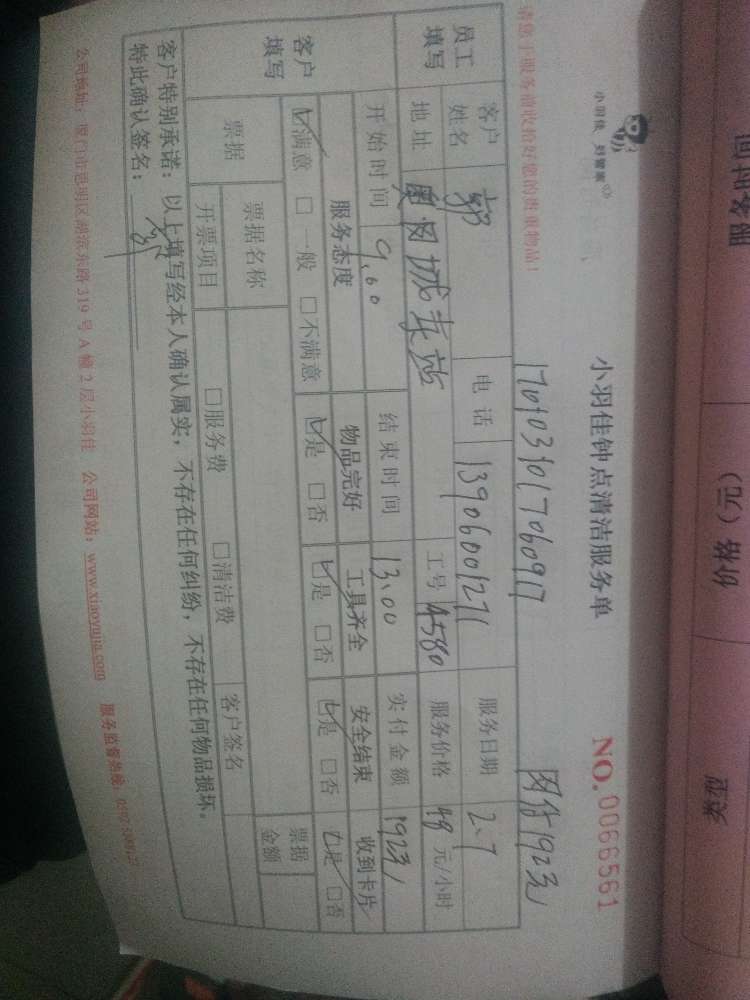 服务时间
价格（元）
类型
小羽佳 好管家
小羽佳钟点清洁服务单
NO.0066561
1701031017060917
网付192元
请您于服务前收拾好您的贵重物品！
员工填写
客户姓名 郭 电话 13906001271 服务日期 2.7
地址 城东站 工号 4580 服务价格 48 元/小时
开始时间 9.00 结束时间 13.00 实付金额 192元
客户填写
服务态度 物品完好 工具齐全 安全结束 收到卡片
☑满意 □一般 □不满意 ☑是 □否 ☑是 □否 ☑是 □否 ☑是 □否
票据 票据名称 票据金额
开票项目 □服务费 □清洁费 客户签名
客户特别承诺：以上填写经本人确认属实，不存在任何纠纷，不存在任何物品损坏。
特此确认签名：
公司地址：厦门市思明区湖滨东路319号A幢2层小羽佳 公司网站：www.xiaoyujia.com 服务监督热线：